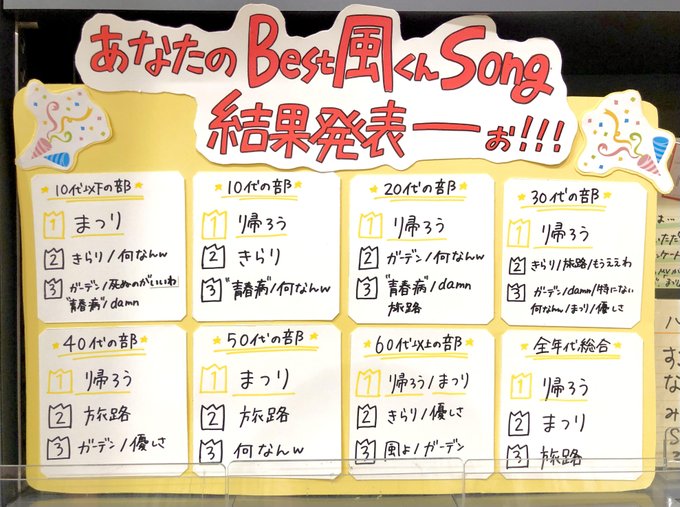 あなたのBest風くんSong
結果発表ーぉ!!!
10代以下の部
1 まつり
2 きらり/何なんw
3 ガーデン/死ぬのがいいわ
"青春病"/damn
10代の部
1 帰ろう
2 きらり
3 "青春病"/何なんw
20代の部
1 帰ろう
2 ガーデン/何なんw
3 "青春病"/damn
旅路
30代の部
1 帰ろう
2 きらり/旅路/もうええわ
3 ガーデン/damn/特にない
何なんw/まつり/優しさ
40代の部
1 帰ろう
2 旅路
3 ガーデン/優しさ
50代の部
1 まつり
2 旅路
3 何なんw
60代以上の部
1 帰ろう/まつり
2 きらり/優しさ
3 風よ/ガーデン
全年代総合
1 帰ろう
2 まつり
3 旅路